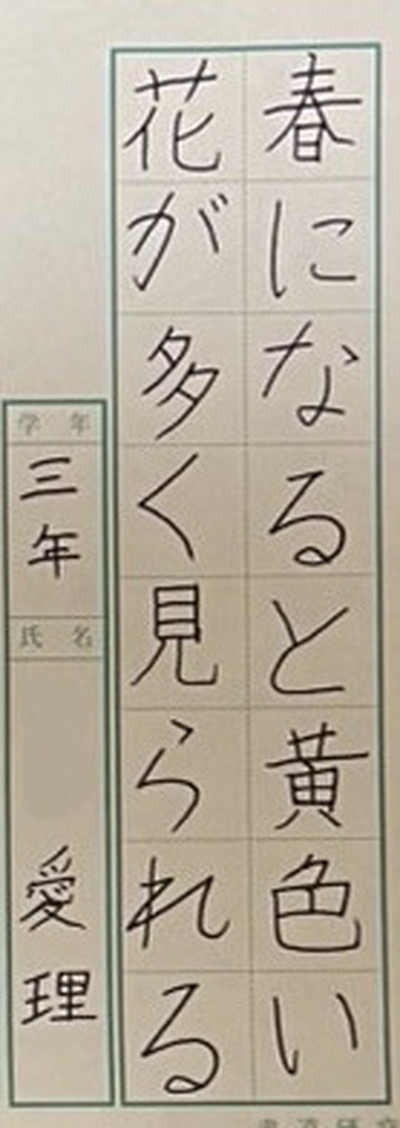 春になると黄色い
花が多く見られる
学年
三年
氏名
愛理